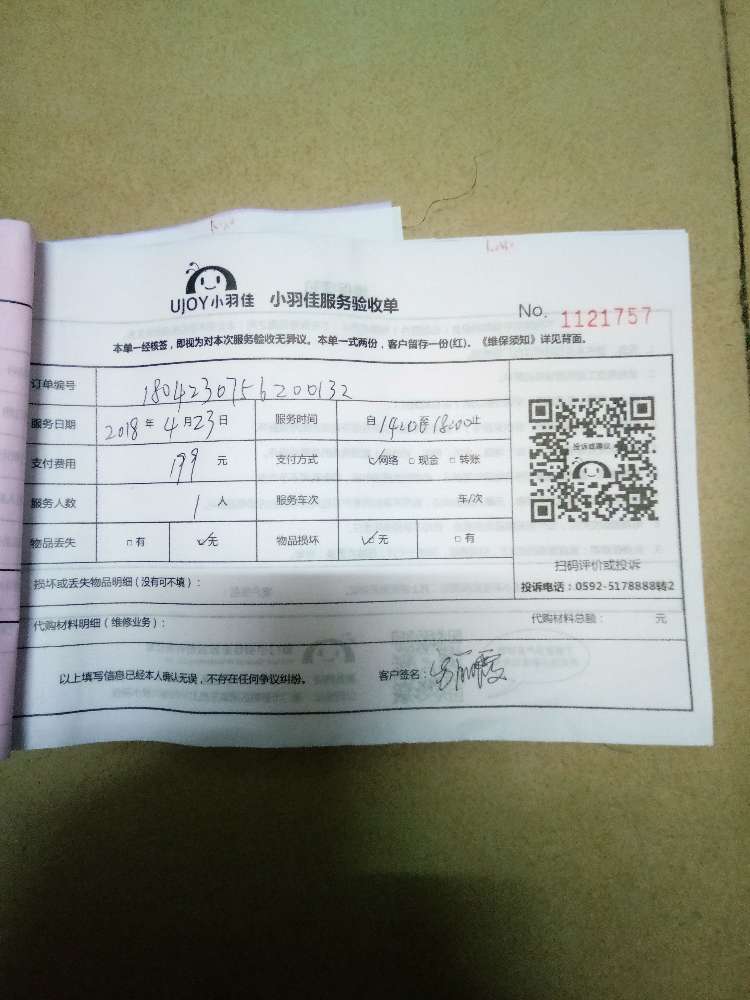 UJOY小羽佳 小羽佳服务验收单
No. 1121757
本单一经核签，即视为对本次服务验收无异议。本单一式两份，客户留存一份(红)。《维保须知》详见背面。
订单编号 1804230756200132
服务日期 2018年4月23日 服务时间 自1400至1800止
支付费用 199元 支付方式 ☑网络 □现金 □转账
服务人数 1人 服务车次 车/次
投诉或建议
物品丢失 □有 ☑无 物品损坏 ☑无 □有
扫码评价或投诉
投诉电话：0592-5178888转2
损坏或丢失物品明细（没有可不填）：
代购材料明细（维修业务）： 代购材料总额： 元
以上填写信息已经本人确认无误，不存在任何争议纠纷。 客户签名：